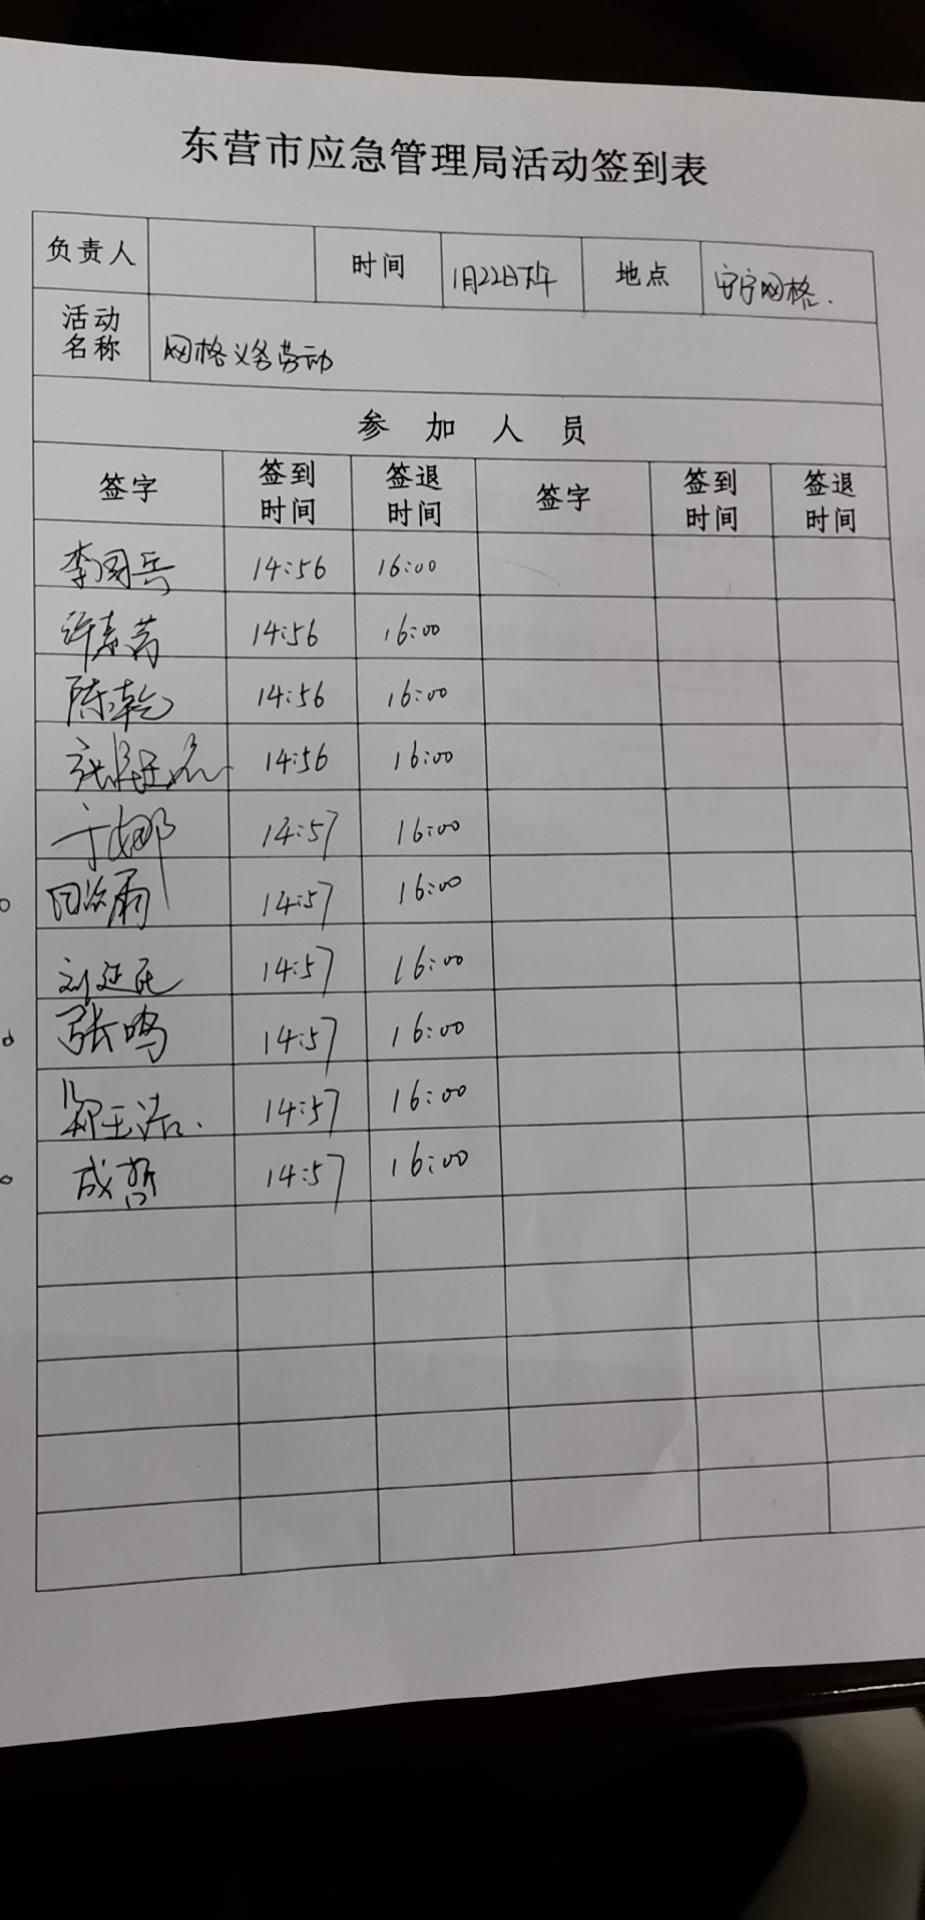 东营市应急管理局活动签到表
负责人 时间 1月22日下午 地点 安宁网格.
活动名称 网格义务劳动
参加人员
签字 签到时间 签退时间 签字 签到时间 签退时间
李国兵 14:56 16:00
许素茜 14:56 16:00
陈乾 14:56 16:00
张 14:56 16:00
于娜 14:57 16:00
14:57 16:00
刘延民 14:57 16:00
张鸣 14:57 16:00
郑玉洁. 14:57 16:00
成哲 14:57 16:00